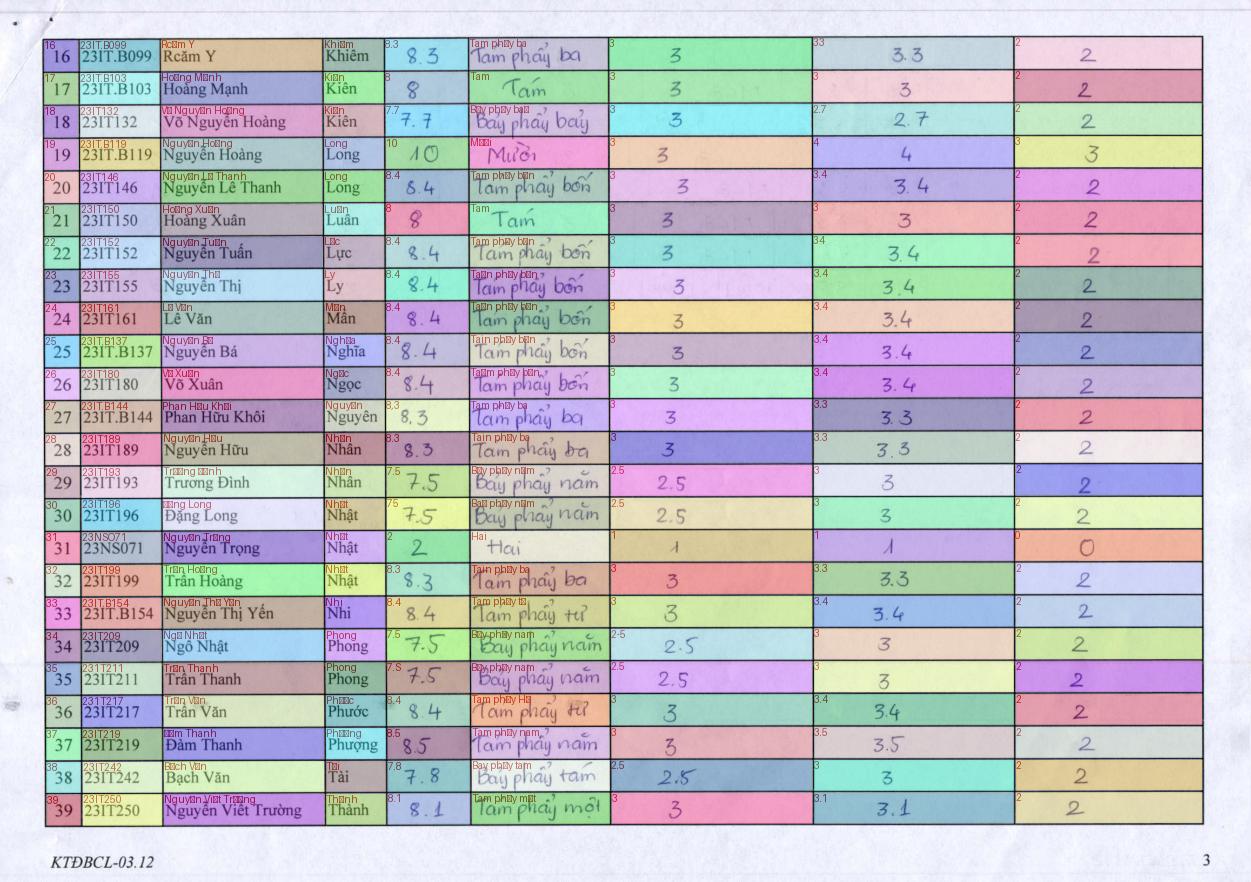 16 23IT.B099 Rcăm Y Khiêm 8.3 Tam phẩy ba 3 3.3 2
17 23IT.B103 Hoàng Mạnh Kiên 8 Tám 3 3 2
18 23IT132 Võ Nguyễn Hoàng Kiên 7.7 Bảy phẩy bảy 3 2.7 2
19 23IT.B119 Nguyễn Hoàng Long 10 Mười 3 4 3
20 23IT146 Nguyễn Lê Thanh Long 8.4 Tam phẩy bốn 3 3.4 2
21 23IT150 Hoàng Xuân Luân 8 Tám 3 3 2
22 23IT152 Nguyễn Tuấn Lực 8.4 Tam phẩy bốn 3 3.4 2
23 23IT155 Nguyễn Thị Ly 8.4 Tam phẩy bốn 3 3.4 2
24 23IT161 Lê Văn Mân 8.4 Tam phẩy bốn 3 3.4 2
25 23IT.B137 Nguyễn Bá Nghĩa 8.4 Tam phẩy bốn 3 3.4 2
26 23IT180 Võ Xuân Ngọc 8.4 Tam phẩy bốn 3 3.4 2
27 23IT.B144 Phan Hữu Khôi Nguyên 8.3 Tam phẩy ba 3 3.3 2
28 23IT189 Nguyễn Hữu Nhân 8.3 Tam phẩy ba 3 3.3 2
29 23IT193 Trương Đình Nhân 7.5 Bảy phẩy năm 2.5 3 2
30 23IT196 Đặng Long Nhật 7.5 Bảy phẩy năm 2.5 3 2
31 23NS071 Nguyễn Trọng Nhật 2 Hai 1 1 0
32 23IT199 Trần Hoàng Nhật 8.3 Tam phẩy ba 3 3.3 2
33 23IT.B154 Nguyễn Thị Yến Nhi 8.4 Tam phẩy tư 3 3.4 2
34 23IT209 Ngô Nhật Phong 7.5 Bảy phẩy năm 2.5 3 2
35 23IT211 Trần Thanh Phong 7.5 Bảy phẩy năm 2.5 3 2
36 23IT217 Trần Văn Phước 8.4 Tam phẩy tư 3 3.4 2
37 23IT219 Đàm Thanh Phượng 8.5 Tam phẩy năm 3 3.5 2
38 23IT242 Bạch Văn Tài 7.8 Bảy phẩy tám 2.5 3 2
39 23IT250 Nguyễn Viết Trường Thành 8.1 Tam phẩy một 3 3.1 2
KTĐBCL-03.12 3